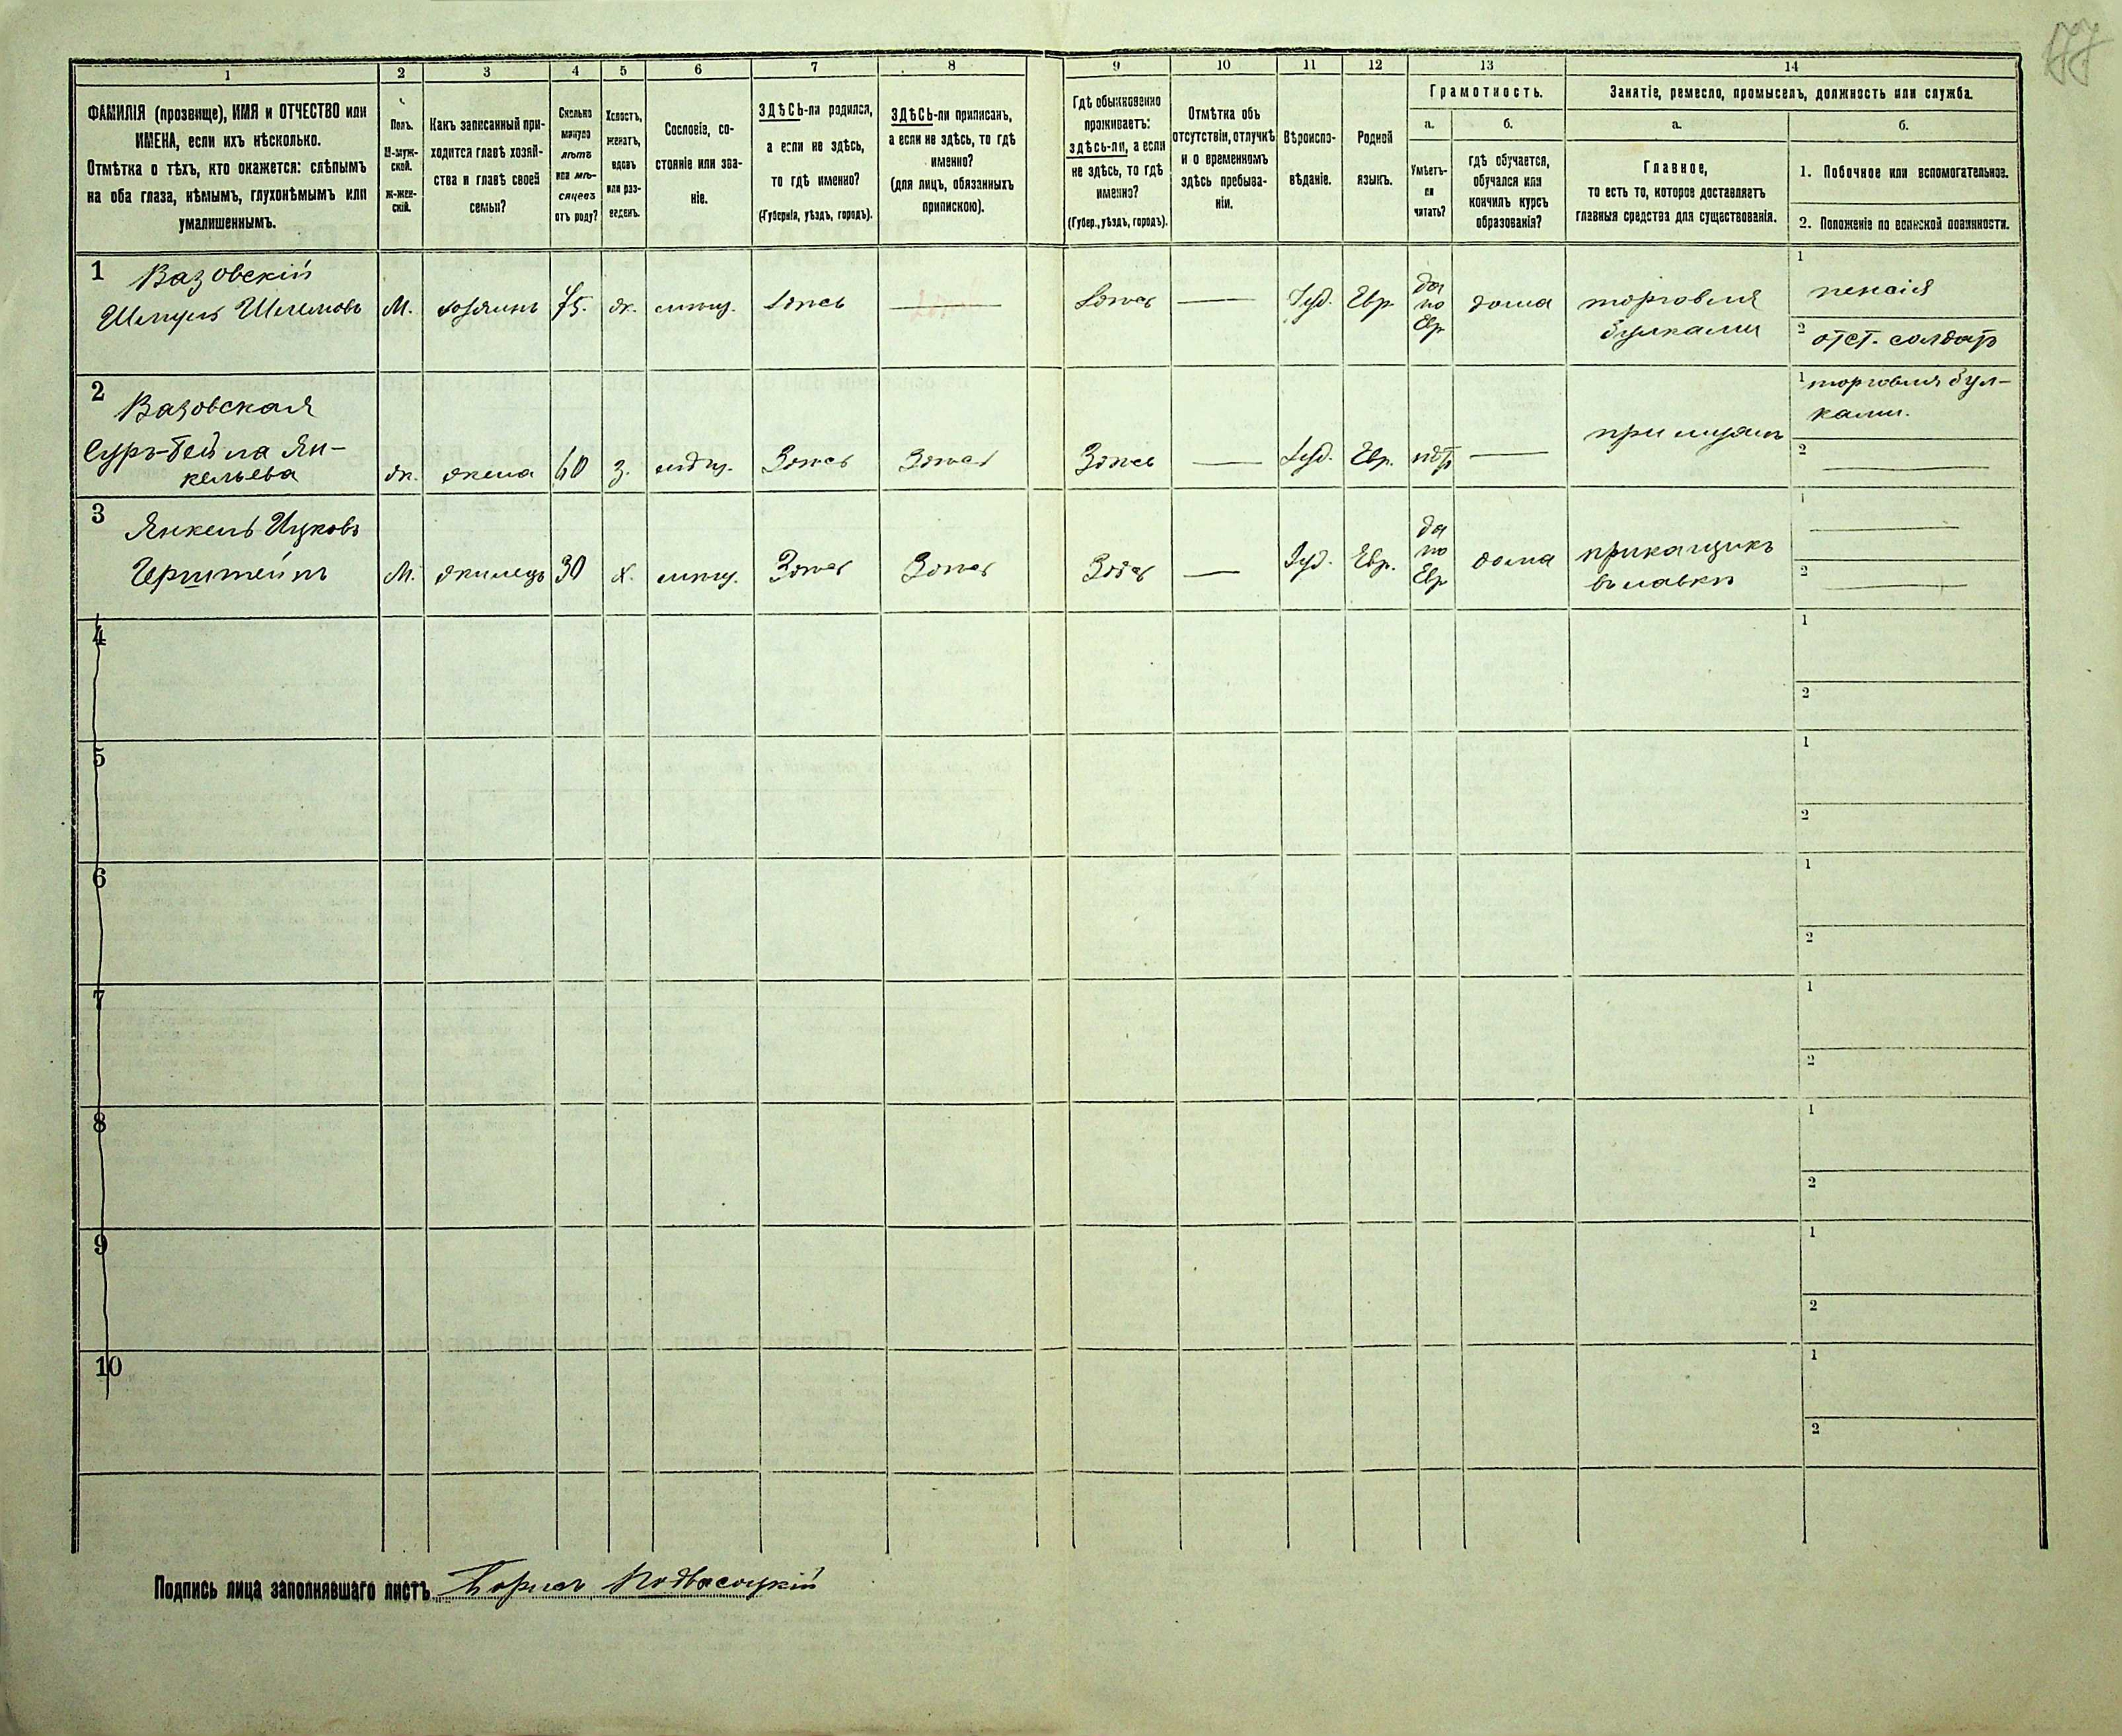 177
1 2 3 4 5 6 7 8 9 10 11 12 13 14
ФАМИЛІЯ (прозвище), ИМЯ и ОТЧЕСТВО или
ИМЕНА, если ихъ нѣсколько.
Отмѣтка о тѣхъ, кто окажется: слѣпымъ
на оба глаза, нѣмымъ, глухонѣмымъ или
умалишеннымъ.
Полъ.
М-муж-
ской.
Ж-жен-
скій.
Какъ записанный при-
ходится главѣ хозяй-
ства и главѣ своей
семьи?
Сколько
минуло
лѣтъ
или мѣ-
сяцевъ
отъ роду?
Холостъ,
женатъ,
вдовъ
или раз-
веденъ.
Сословіе, со-
стояніе или зва-
ніе.
ЗДѢСЬ-ли родился,
а если не здѣсь,
то гдѣ именно?
(Губернія, уѣздъ, городъ).
ЗДѢСЬ-ли приписанъ,
а если не здѣсь, то гдѣ
именно?
(для лицъ, обязанныхъ
припискою).
Гдѣ обыкновенно
проживаетъ:
здѣсь-ли, а если
не здѣсь, то гдѣ
именно?
(Губер., уѣздъ, городъ).
Отмѣтка объ
отсутствіи, отлучкѣ
и о временномъ
здѣсь пребыва-
ніи.
Вѣроиспо-
вѣданіе.
Родной
языкъ.
Грамотность.
а.
Умѣетъ-
ли
читать?
б.
гдѣ обучается,
обучался или
кончилъ курсъ
образованія?
Занятіе, ремесло, промыселъ, должность или служба.
а.
Главное,
то есть то, которое доставляетъ
главныя средства для существованія.
б.
1. Побочное или вспомогательное.
2. Положеніе по воинской повинности.
1 Вазовскій
Шмуль Шлемовъ М. хозяинъ 75. ж. мѣщ. Здѣсь — Здѣсь — Іуд. Евр. да по Евр дома торговля булками
1 пенсія
2 отст. солдатъ
2 Вазовская
Сура-Бейла Ян-
кельева ж. жена 60 з. мѣщ. Здѣсь Здѣсь Здѣсь — Іуд. Евр. нѣтъ — при мужѣ
1 торговля бул-
ками.
2 —
3 Янкель Ицковъ
Герштейнъ М. жилецъ 30 х. мѣщ. Здѣсь Здѣсь Здѣсь — Іуд. Евр. да по Евр дома прикащикъ въ лавкѣ
1 —
2 —
4 1
2
5 1
2
6 1
2
7 1
2
8 1
2
9 1
2
10 1
2
Подпись лица заполнявшаго листъ Борисъ Подвысоцкій